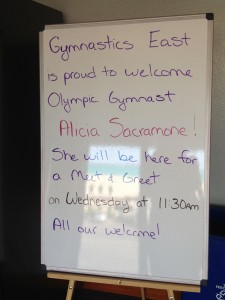 Gymnastics East
is proud to welcome
Olympic Gymnast
Alicia Sacramone!
She will be here for
a Meet & Greet
on Wednesday at 11:30AM
All our welcome!